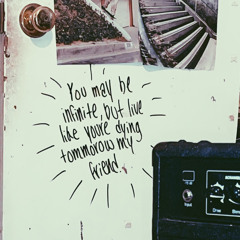 You may be
infinite, but live
like you're dying
tommorow my
friend.